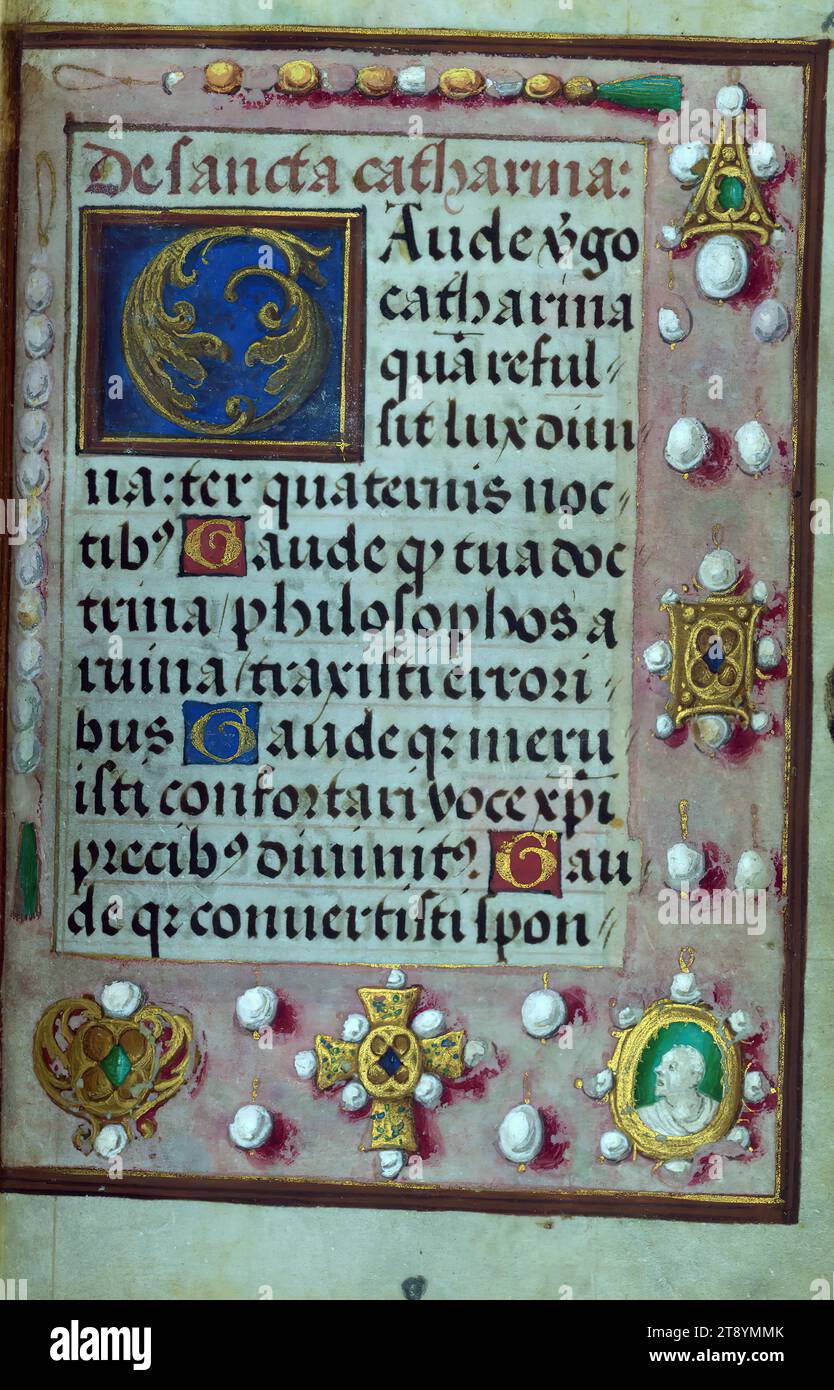 De sancta catharina:
GAude v̇go
catharina
quā reful-
sit lux diui
na: ter quaternis noc-
tibꝰ Gaude qꝫ tua doc
trina / philosophos a
ruina / traxisti errori-
bus Gaude qꝛ meru
isti confortari voce xp̄i
precibꝰ diuinitꝰ. Gau-
de qꝛ conuertisti spon-
alamy
Image ID: 2T8YMMK
www.alamy.com